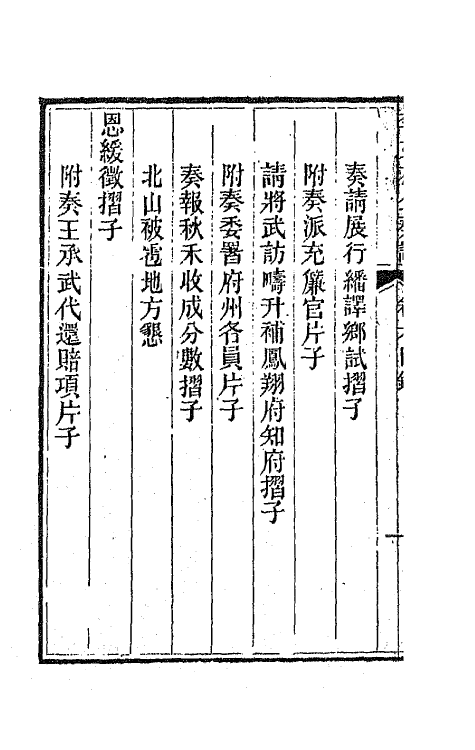 奏請展行繙譯鄉試摺子
附奏派充簾官片子
請將武訪疇升補鳳翔府知府摺子
附奏委署府州各員片子
奏報秋禾收成分數摺子
北山被雹地方懇
恩緩徵摺子
附奏王承武代還賠項片子